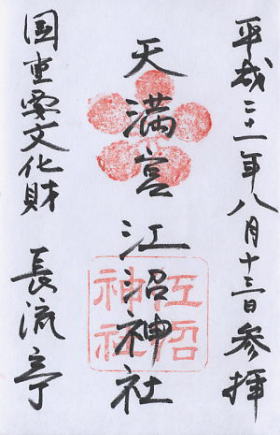 平成二十一年八月十三日参拝
天満宮 江沼神社
国重要文化財 長流亭
江沼
神社